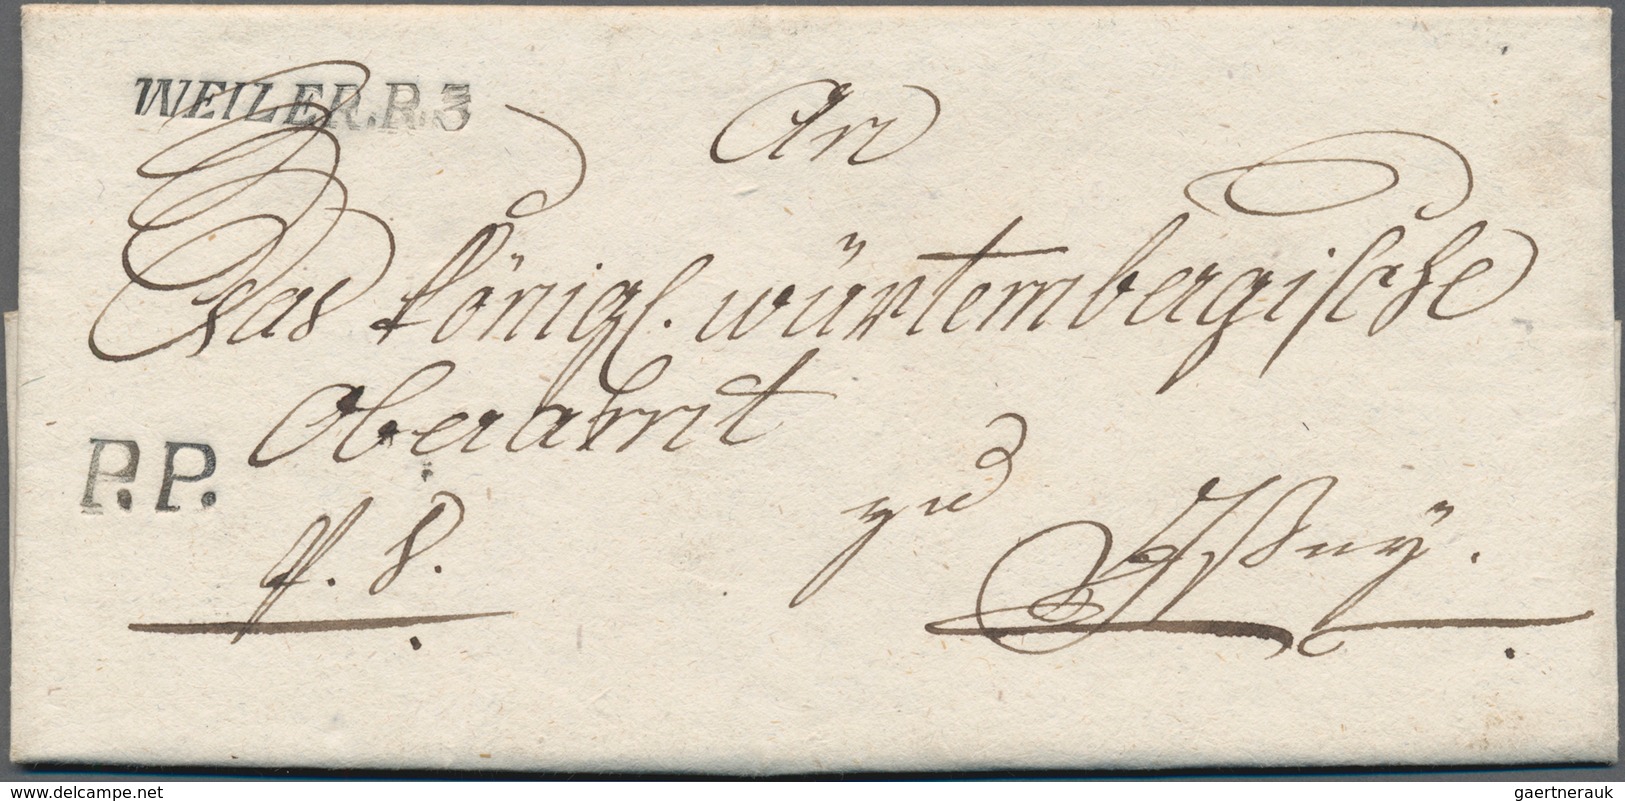 WEILER.R.3
An
das königl. würtembergische
Oberamt
P.P.
zu
Yßnÿ.
delcampe.net
gaertnerauk